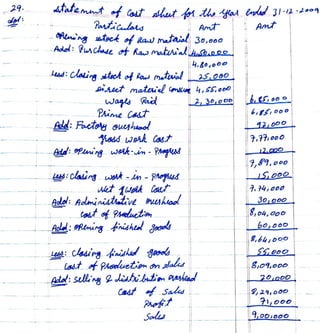 29. Statement of Cost sheet for the year Ended 31-12-2009
Sol: Particulars Amt Amt
Opening stock of Raw material 30,000
Add: Purchase of Raw material 4,50,000
4,80,000
Less: Closing stock of Raw material 25,000
Direct material Consume 4,55,000
Wages Paid 2,30,000 6,85,000
Prime Cost 6,85,000
Add: Factory overhead 92,000
Gross work Cost 7,77,000
Add: opening work-in-Progress 12,000
7,89,000
Less: Closing work-in-Progress 15,000
Net work Cost 7,74,000
Add: Administrative overhead 30,000
Cost of Production 8,04,000
Add: opening finished goods 60,000
8,64,000
Less: Closing finished goods 55,000
Cost of Production on sales 8,09,000
Add: Selling & distribution overhead 20,000
Cost of Sales 8,29,000
Profit 71,000
Sales 9,00,000